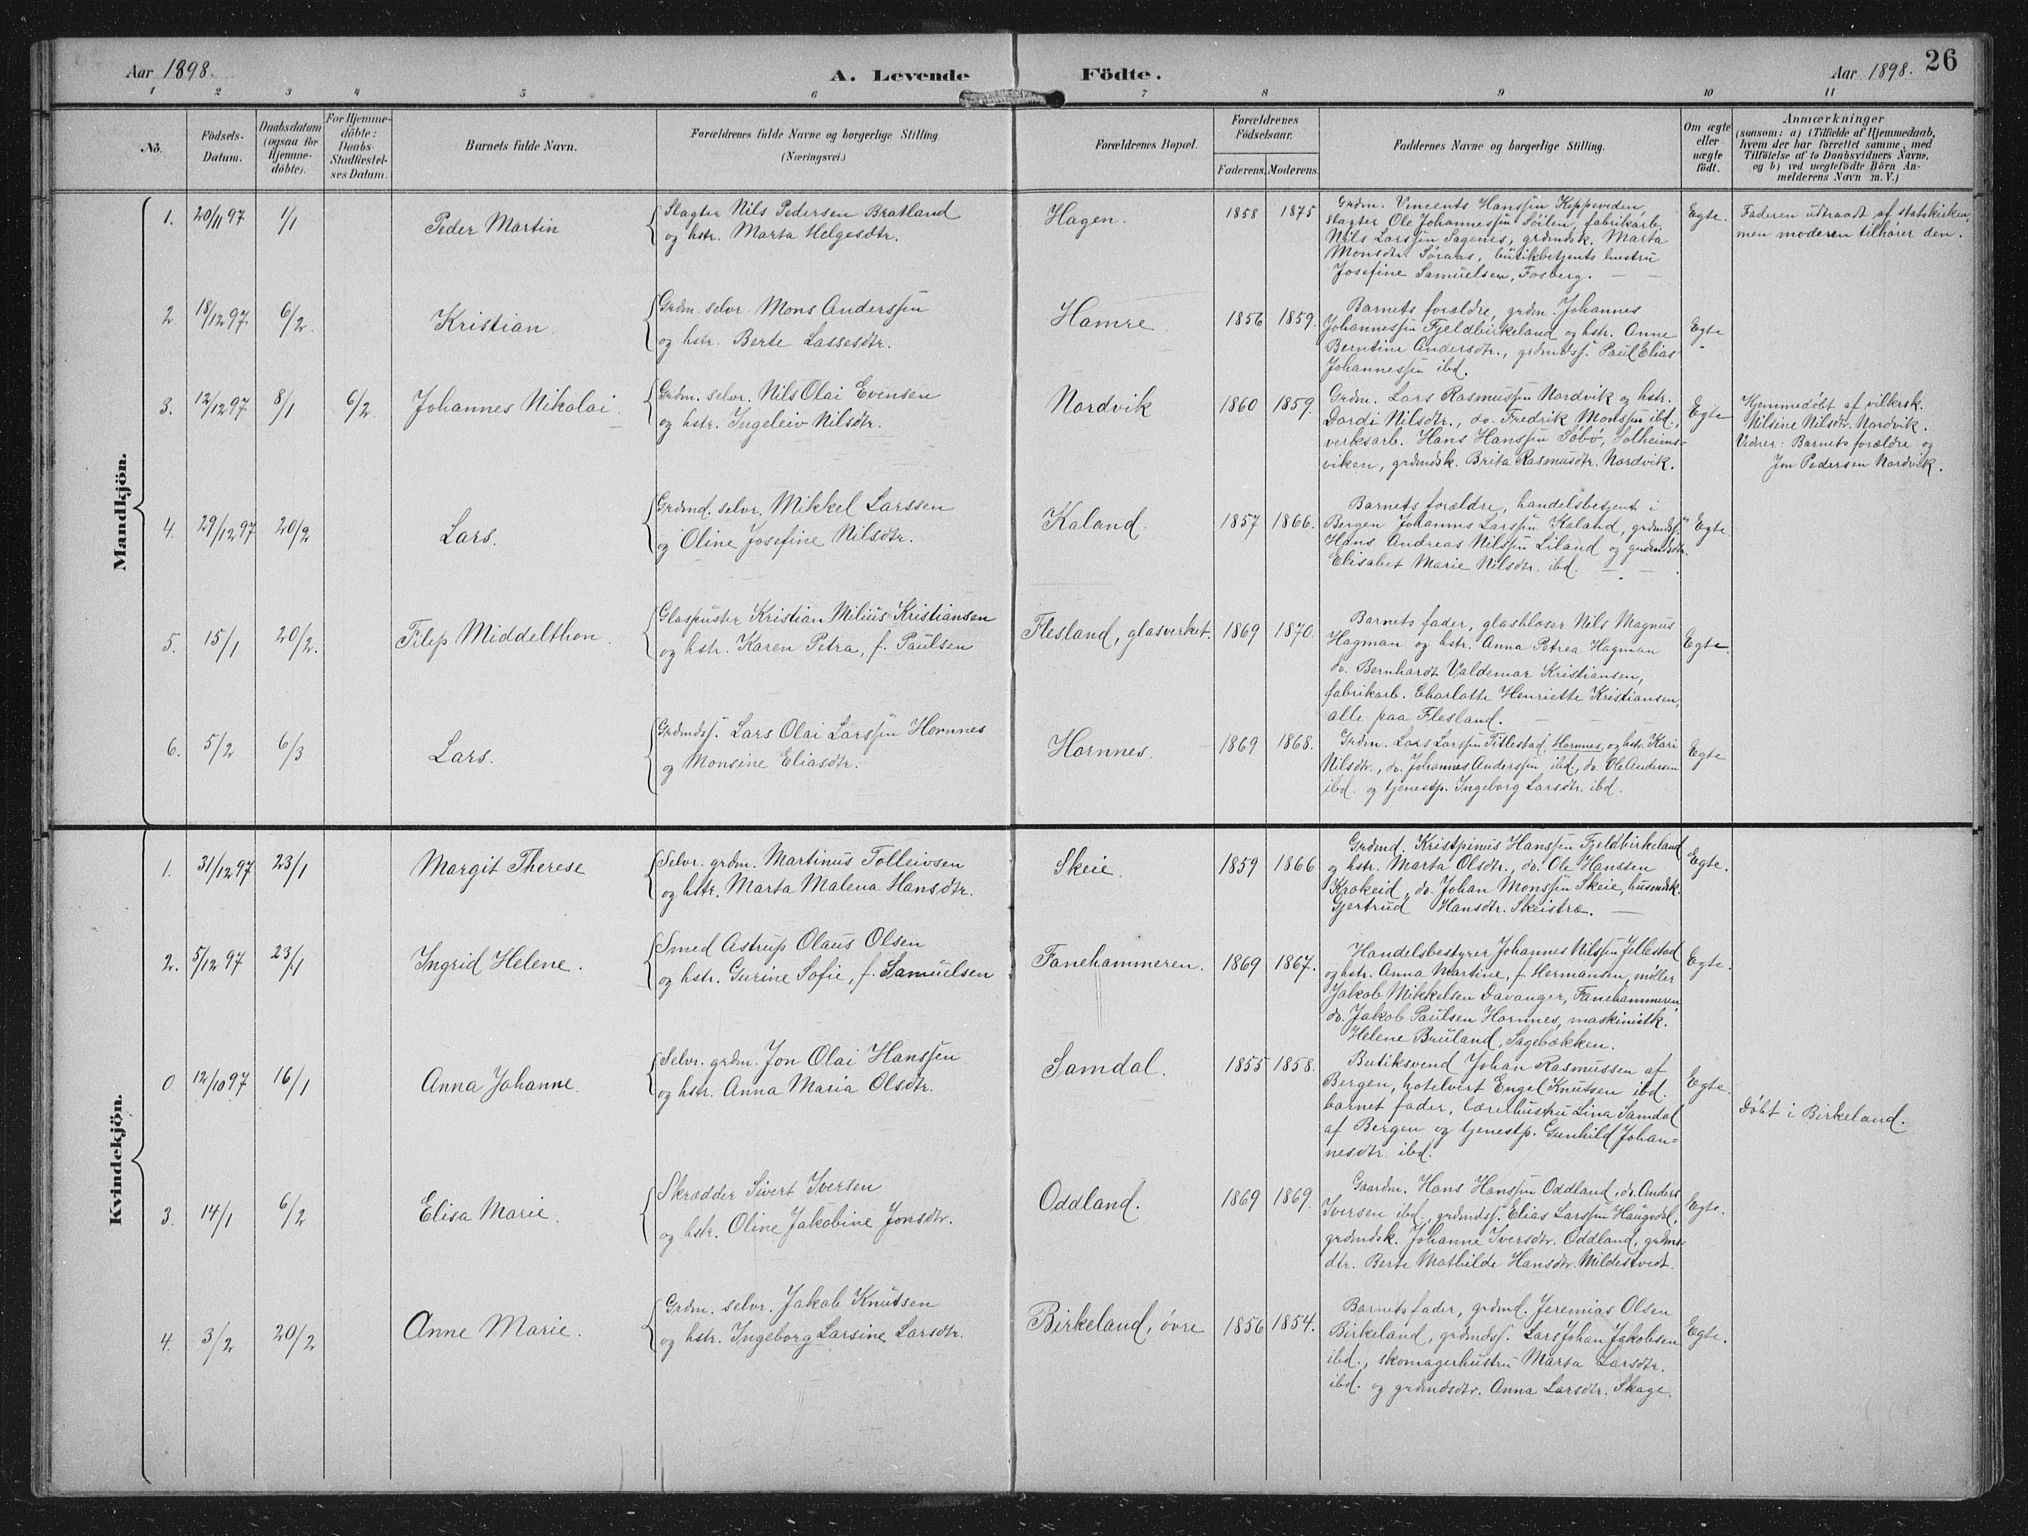 Aar 1898.
A. Levende
Födte.
Aar 1898.
26
1 2 3 4 5 6 7 8 9 10 11
No.
Födsels-
Datum.
Daabsdatum
(ogsaa for
Hjemme-
döbte).
For Hjemme-
döbte:
Daabs-
Stadfæstel-
ses Datum.
Barnets fulde Navn.
Forældrenes fulde Navne og borgerlige Stilling.
(Næringsvei.)
Forældrenes Bopæl.
Forældrenes
Födselsaar.
Faderens. Moderens.
Faddernes Navne og borgerlige Stilling.
Om ægte
eller
uægte
födt.
Anmærkninger
(saasom: a) i Tilfælde af Hjemmedaab,
hvem der har forrettet samme, med
Tilföielse af to Daabsvidners Navne,
og b) ved uægtefödte Börn An-
melderens Navn m. V.)
Mandkjön.
1. 20/11 97 1/1 Peder Martin
Slagter Nils Pedersen Bratland
og hstr. Marta Helgesdtr.
Hagen. 1858 1875
Grdm. Vincents Hanssen Kippeveden,
slagter Ole Johannessen Söilen, fabrikarb.
Nils Larssen Sagenes, grdmdsk. Marta
Monsdtr. Søraas, butikbetjents hustru
Josefine Samuelsen, Fosberg.
Egte.
Faderen udtraadt af statskirken,
men moderen tilhører den.
2 18/12 97 6/2. Kristian.
Grdm. selvr. Mons Anderssen
og hstr. Berte Lassesdtr.
Hamre. 1856 1859.
Barnets forældre, grdm. Johannes
Johannessen Fjeldbirkeland og hstr. Anne
Berntine Andersdtr., grdmdss. Paul Elias
Johannessen ibd.
Egte
3. 12/12 97 8/1 6/2. Johannes Nikolai.
Grdm. selvr. Nils Olai Evensen
og hstr. Ingeleiv Nilsdtr.
Nordvik 1860 1859.
Grdm. Lars Rasmussen Nordvik og hstr.
Dordi Nilsdtr., do. Fredrik Monssen ibd.,
verksarb. Hans Hanssen Søbø, Solheims-
viken, grdmdsk. Brita Rasmusdtr. Nordvik.
Egte
Hjemmedøbt af vilkersk.
Nilsine Nilsdtr. Nordvik.
Vidner: Barnets forældre og
Jon Pedersen Nordvik.
4. 29/12 97 20/2 Lars.
Grdmd. selvr. Mikkel Larssen
og Oline Josefine Nilsdtr.
Kaland. 1857 1866.
Barnets forældre, handelsbetjent i
Bergen Johannes Larssen Kaland, grdmdss.
Hans Andreas Nilssen Liland og grdmdsdtr.
Elisabet Marie Nilsdtr. ibd.
Egte
5. 15/1 20/2. Filip Middelthon.
Glaspuster Kristian Milius Kristiansen
og hstr. Karen Petra, f. Paulsen
Flesland, glasverket. 1869 1870.
Barnets fader, glasblöser Nils Magnus
Hagman og hstr. Anna Petrea Hagman
do. Bernhardt Valdemar Kristiansen,
fabrikarb. Charlotte Henriette Kristiansen,
alle paa Flesland.
Egte.
6. 5/2 6/3 Lars.
Grdmdss. Lars Olai Larssen Hornnes
og Monsine Eliasdtr.
Hornnes. 1869 1868.
Grdm. Lars Larssen Titlestad, Hornnes, og hstr. Kari
Nilsdtr., do. Johannes Anderssen ibd., do. Ole Andersen
ibd. og tjenestp. Ingeborg Larsdtr. ibd.
Egte
Kvindekjön.
1. 31/12 97 23/1 Margit Therese
Selvr. grdm. Martinus Tolleivsen
og hstr. Marta Malena Hansdtr.
Skeie. 1859 1866
Grdmd. Kristpinus Hanssen Fjeldbirkeland
og hstr. Marta Olsdtr., do. Ole Hanssen
Krokeid, do. Johan Monssen Skeie, husmdsk.
Gjertrud Hansdtr. Skeistræ.
Egte.
2. 5/12 97 23/1 Ingrid Helene.
Smed Astrup Olaus Olsen
og hstr. Gurine Sofie, f. Samuelsen
Fanehammeren. 1869 1867.
Handelsbestyrer Johannes Nilssen Jellestad
og hstr. Anna Martine, f. Hermansen, møller
Jakob Mikkelsen Davanger, Fanehammeren,
do. Jakob Paulsen Hornnes, maskinistk.
Helene Bruland, Sagebækken.
Egte.
0 12/10 97 16/1 Anna Johanne.
Selvr. grdm. Jon Olai Hanssen
og hstr. Anna Maria Olsdtr.
Samdal. 1855 1858.
Butiksvend Johan Rasmussen af
Bergen, hotelvert Engel Knutsen ibd.
barnet fader, lærelhustru Lina Samdal
af Bergen og tjenestp. Gunhild Johan-
nesdtr. ibd.
Egte.
Döbt i Birkeland.
3. 14/1 6/2 Elisa Marie.
Skrædder Sivert Iversen
og hstr. Oline Jakobine Jonsdtr.
Oddland. 1869 1869.
Gaardm. Hans Hanssen Oddland, do. Anders
Iversen ibd., grdmdss. Elias Larssen Haugsdal,
grdmdsk. Johanne Iversdtr. Oddland, grdmds-
dtr. Berte Mathilde Hansdtr. Mildestvedt.
Egte.
4. 3/2 20/2 Anne Marie.
Grdm. selvr. Jakob Knutsen
og hstr. Ingeborg Larsine Larsdtr.
Birkeland, øvre 1856 1854.
Barnets fader, grdmd. Jeremias Olsen
Birkeland, grdmdss. Lars Johan Jakobsen
ibd., skomagerhustru Marta Larsdtr.
ibd. og grdmdsdtr. Anna Larsdtr. Skage.
Egte.